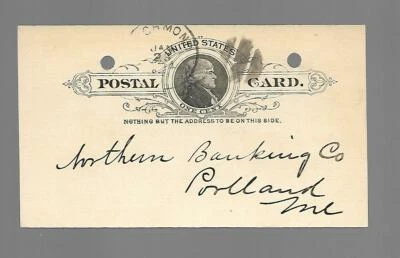 UNITED STATES
POSTAL CARD.
ONE CENT
NOTHING BUT THE ADDRESS TO BE ON THIS SIDE.
Northern Banking Co
Portland
Me